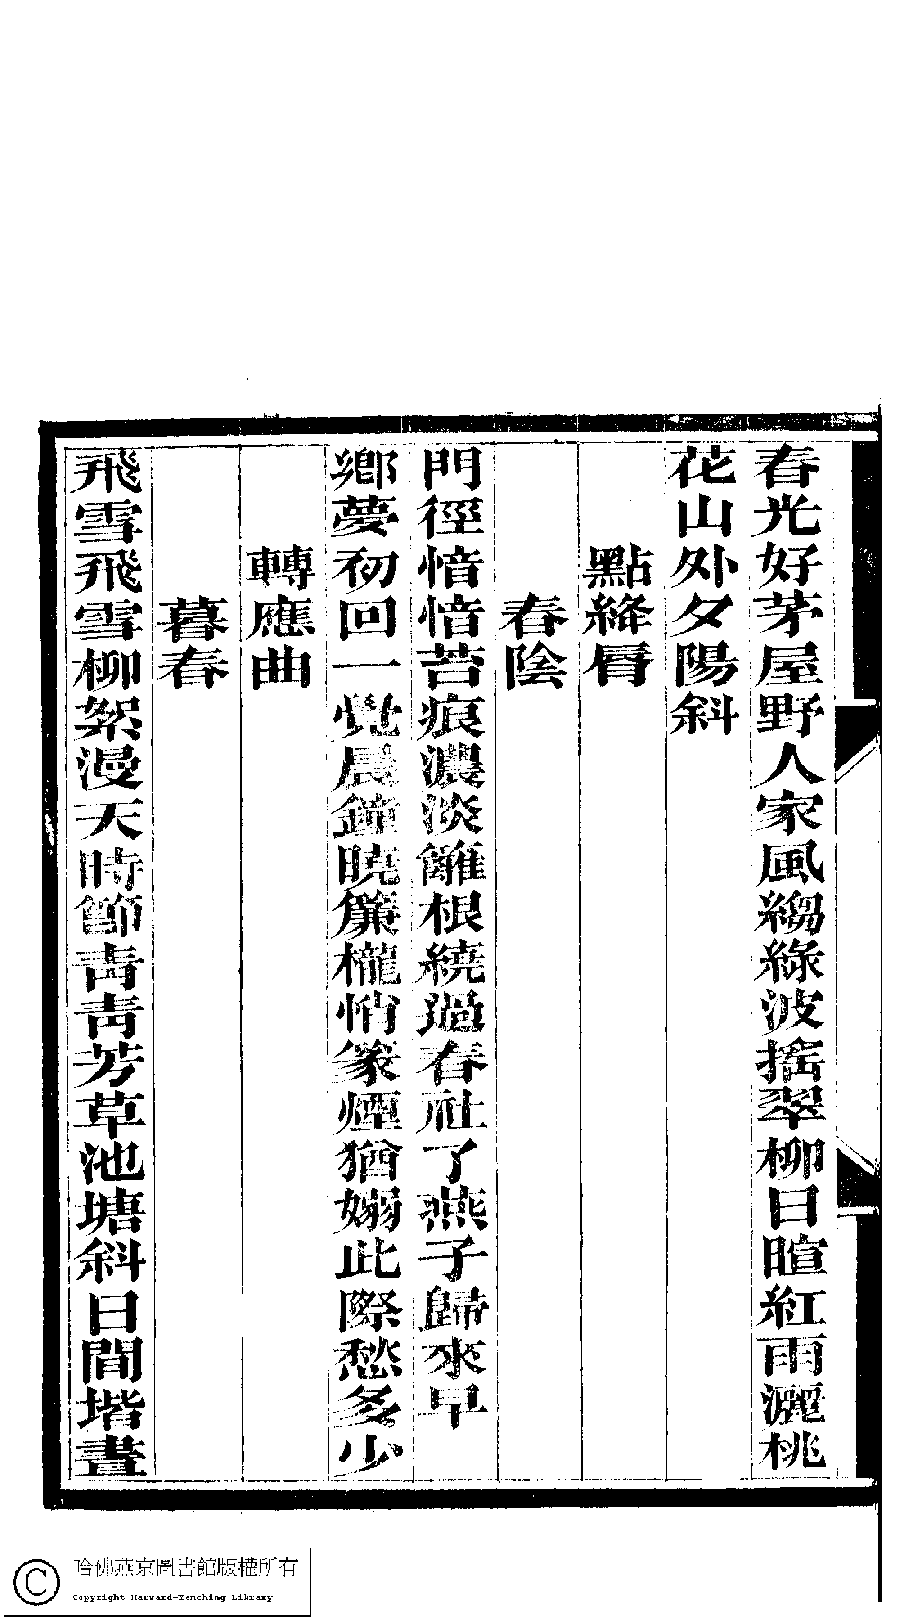 春光好茅屋野人家風縐綠波搖翠柳日暄紅雨灑桃
花山外夕陽斜
點絳脣
春陰
門徑愔愔苔痕濃淡籬根繞過春社了燕子歸來早
鄉夢初回一覺晨鐘曉簾櫳悄篆煙猶嫋此際愁多少
轉應曲
暮春
飛雪飛雪柳絮漫天時節靑靑芳草池塘斜日閒堦晝
哈佛燕京圖書館版權所有
Copyright Harvard-Yenching Library